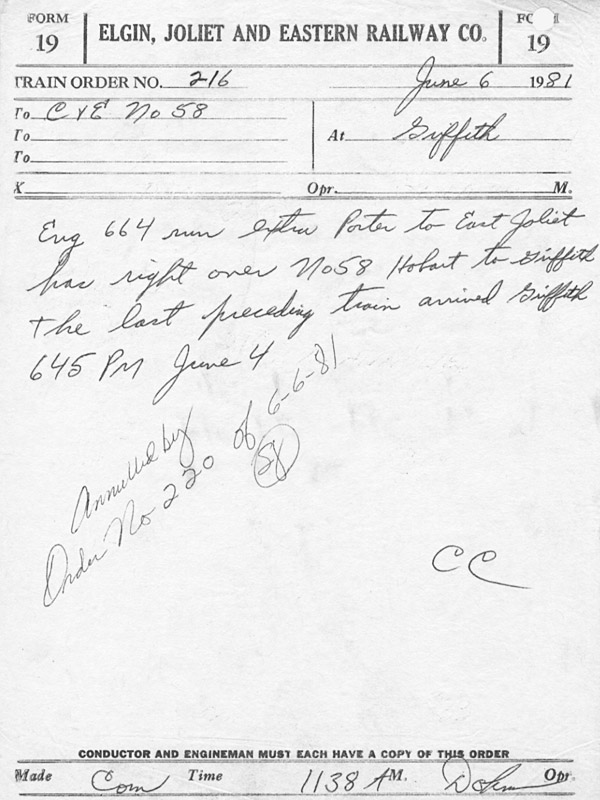 FORM 19 ELGIN, JOLIET AND EASTERN RAILWAY CO. FORM 19
TRAIN ORDER NO. 216 June 6 1981
To C & E No 58
To At Griffith
To
X Opr. M.
Eng 664 run extra Porter to East Joliet
has right over No58 Hobart to Griffith
+ he last preceding train arrived Griffith
645 PM June 4
Annulled by
Order No 220 of 6-6-81
CC
CONDUCTOR AND ENGINEMAN MUST EACH HAVE A COPY OF THIS ORDER
Made Com Time 1138 AM. Opr.